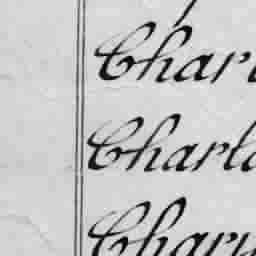 Charl
Charlo
Chary